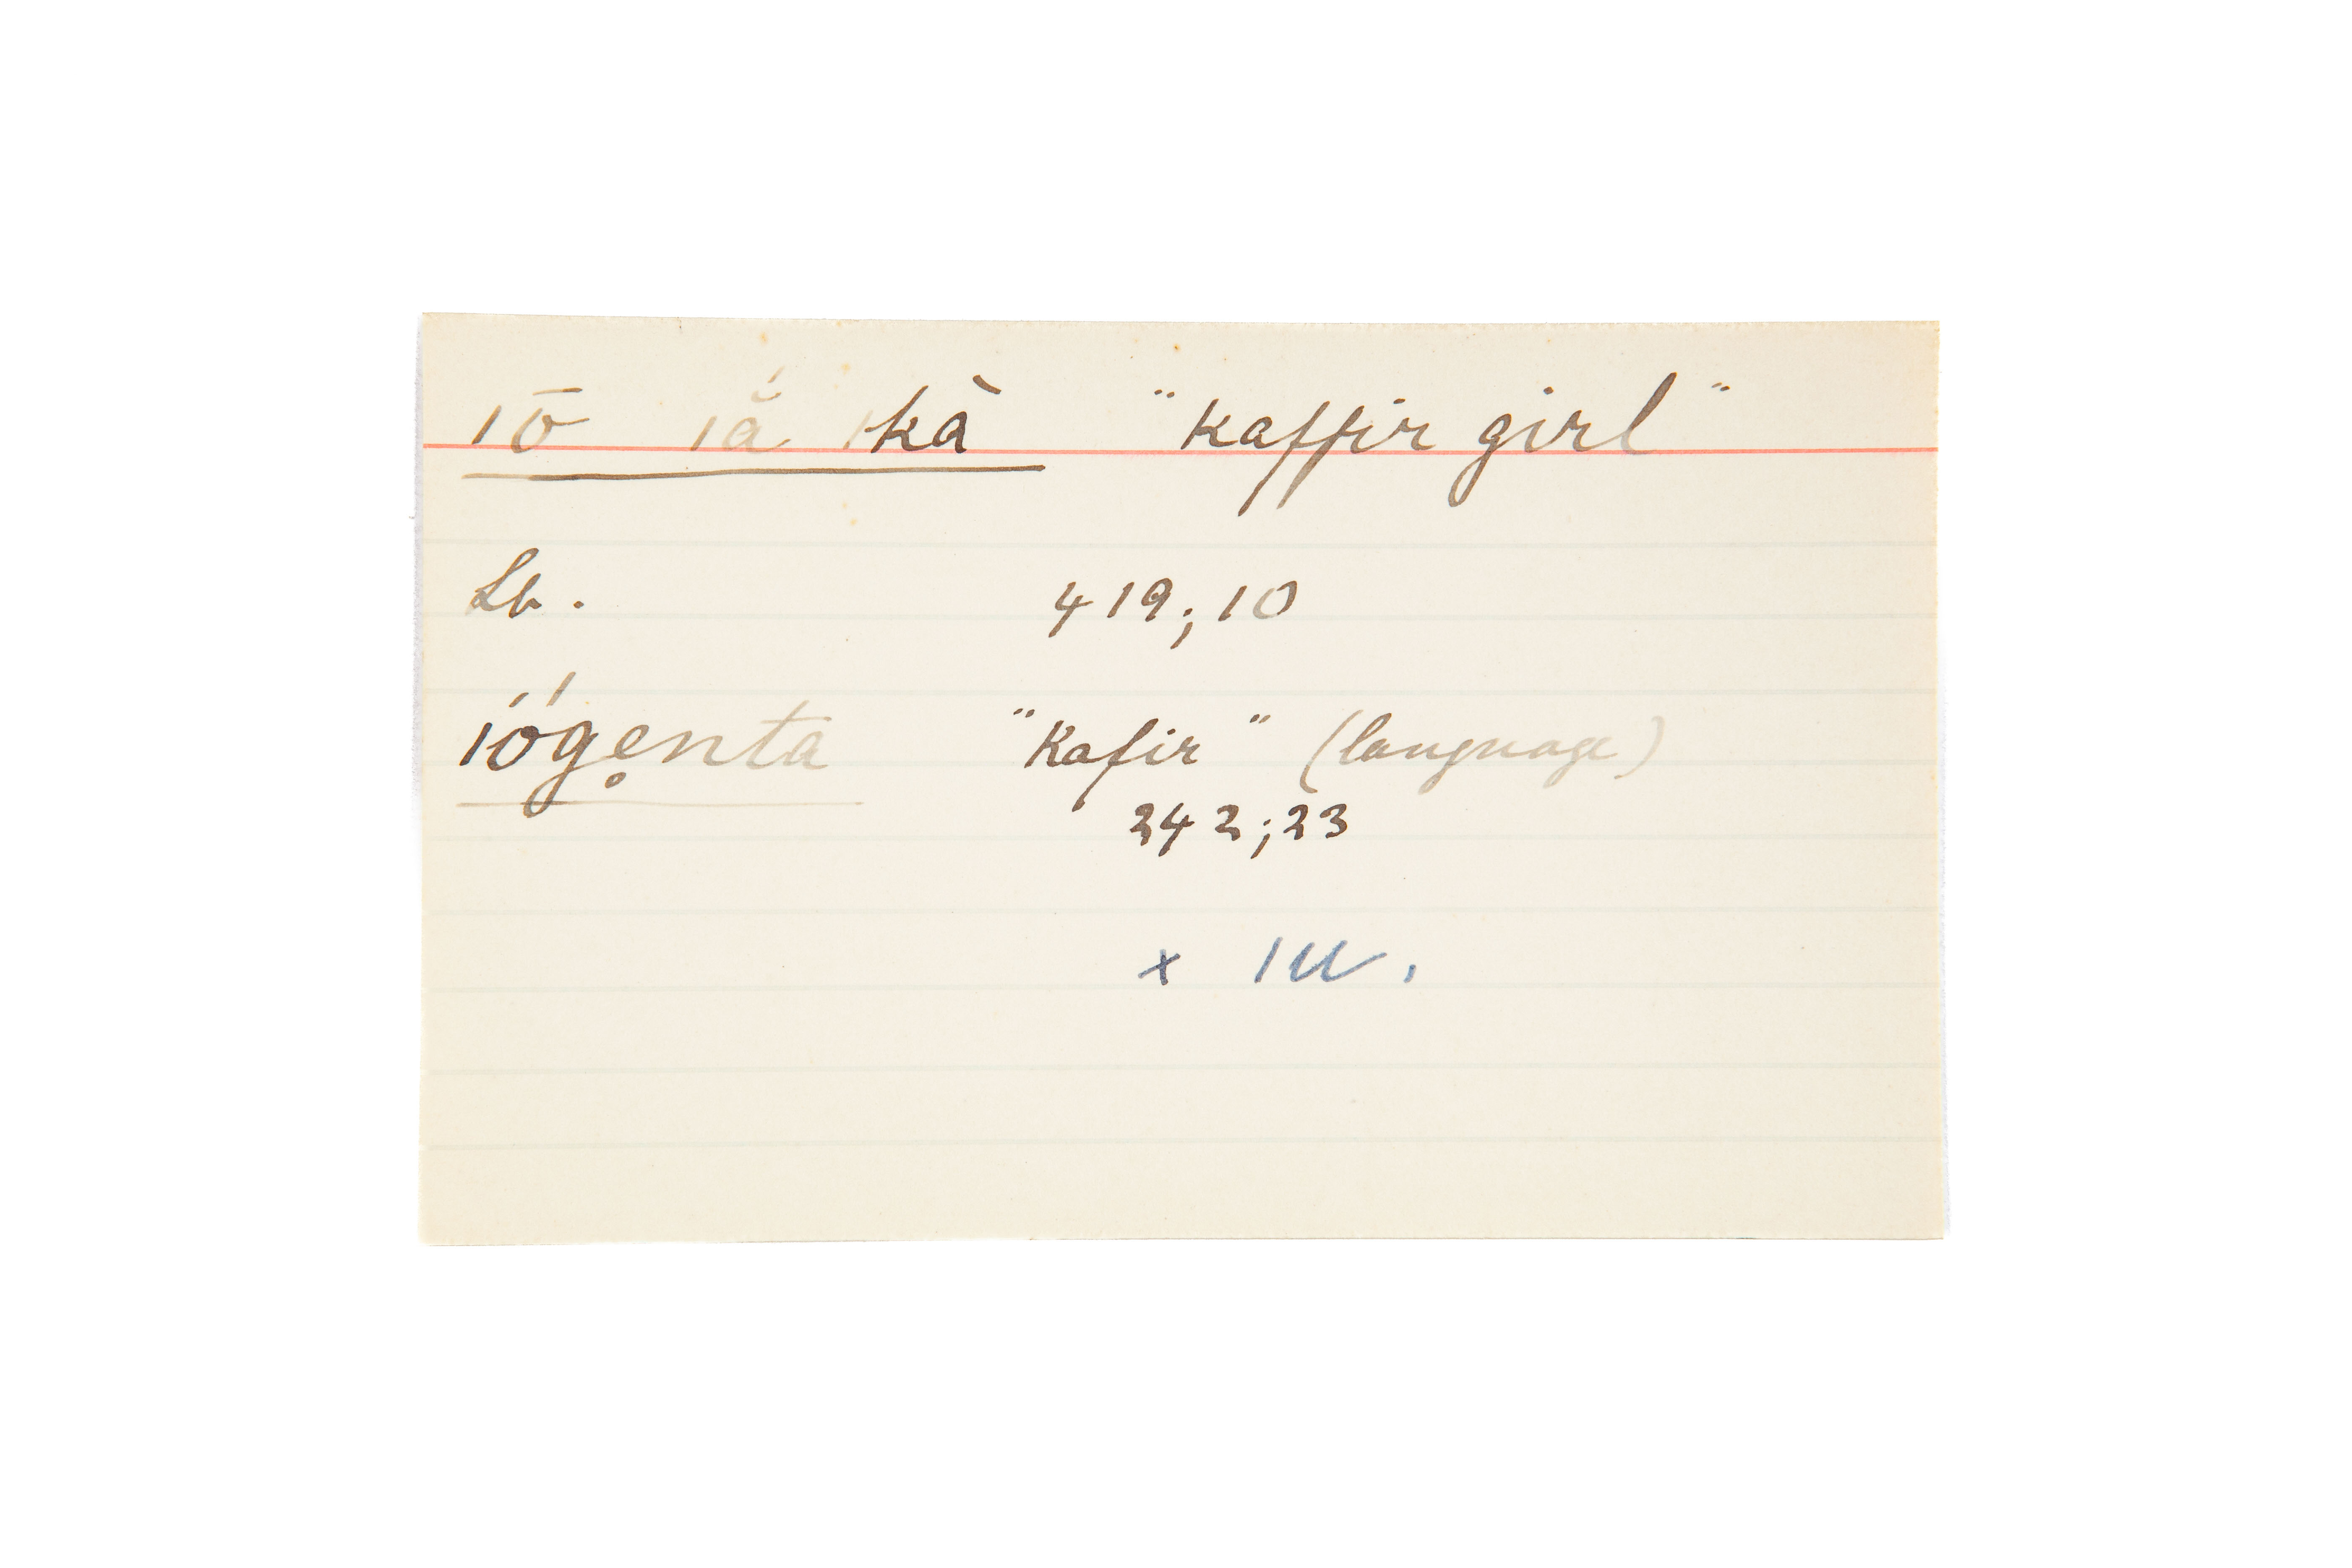 ǀō ǀắ ǀkà "Kaffir girl"
Lb. 419;10
ǀóǵe̥nta "Kafir" (language)
242;23
x IU.